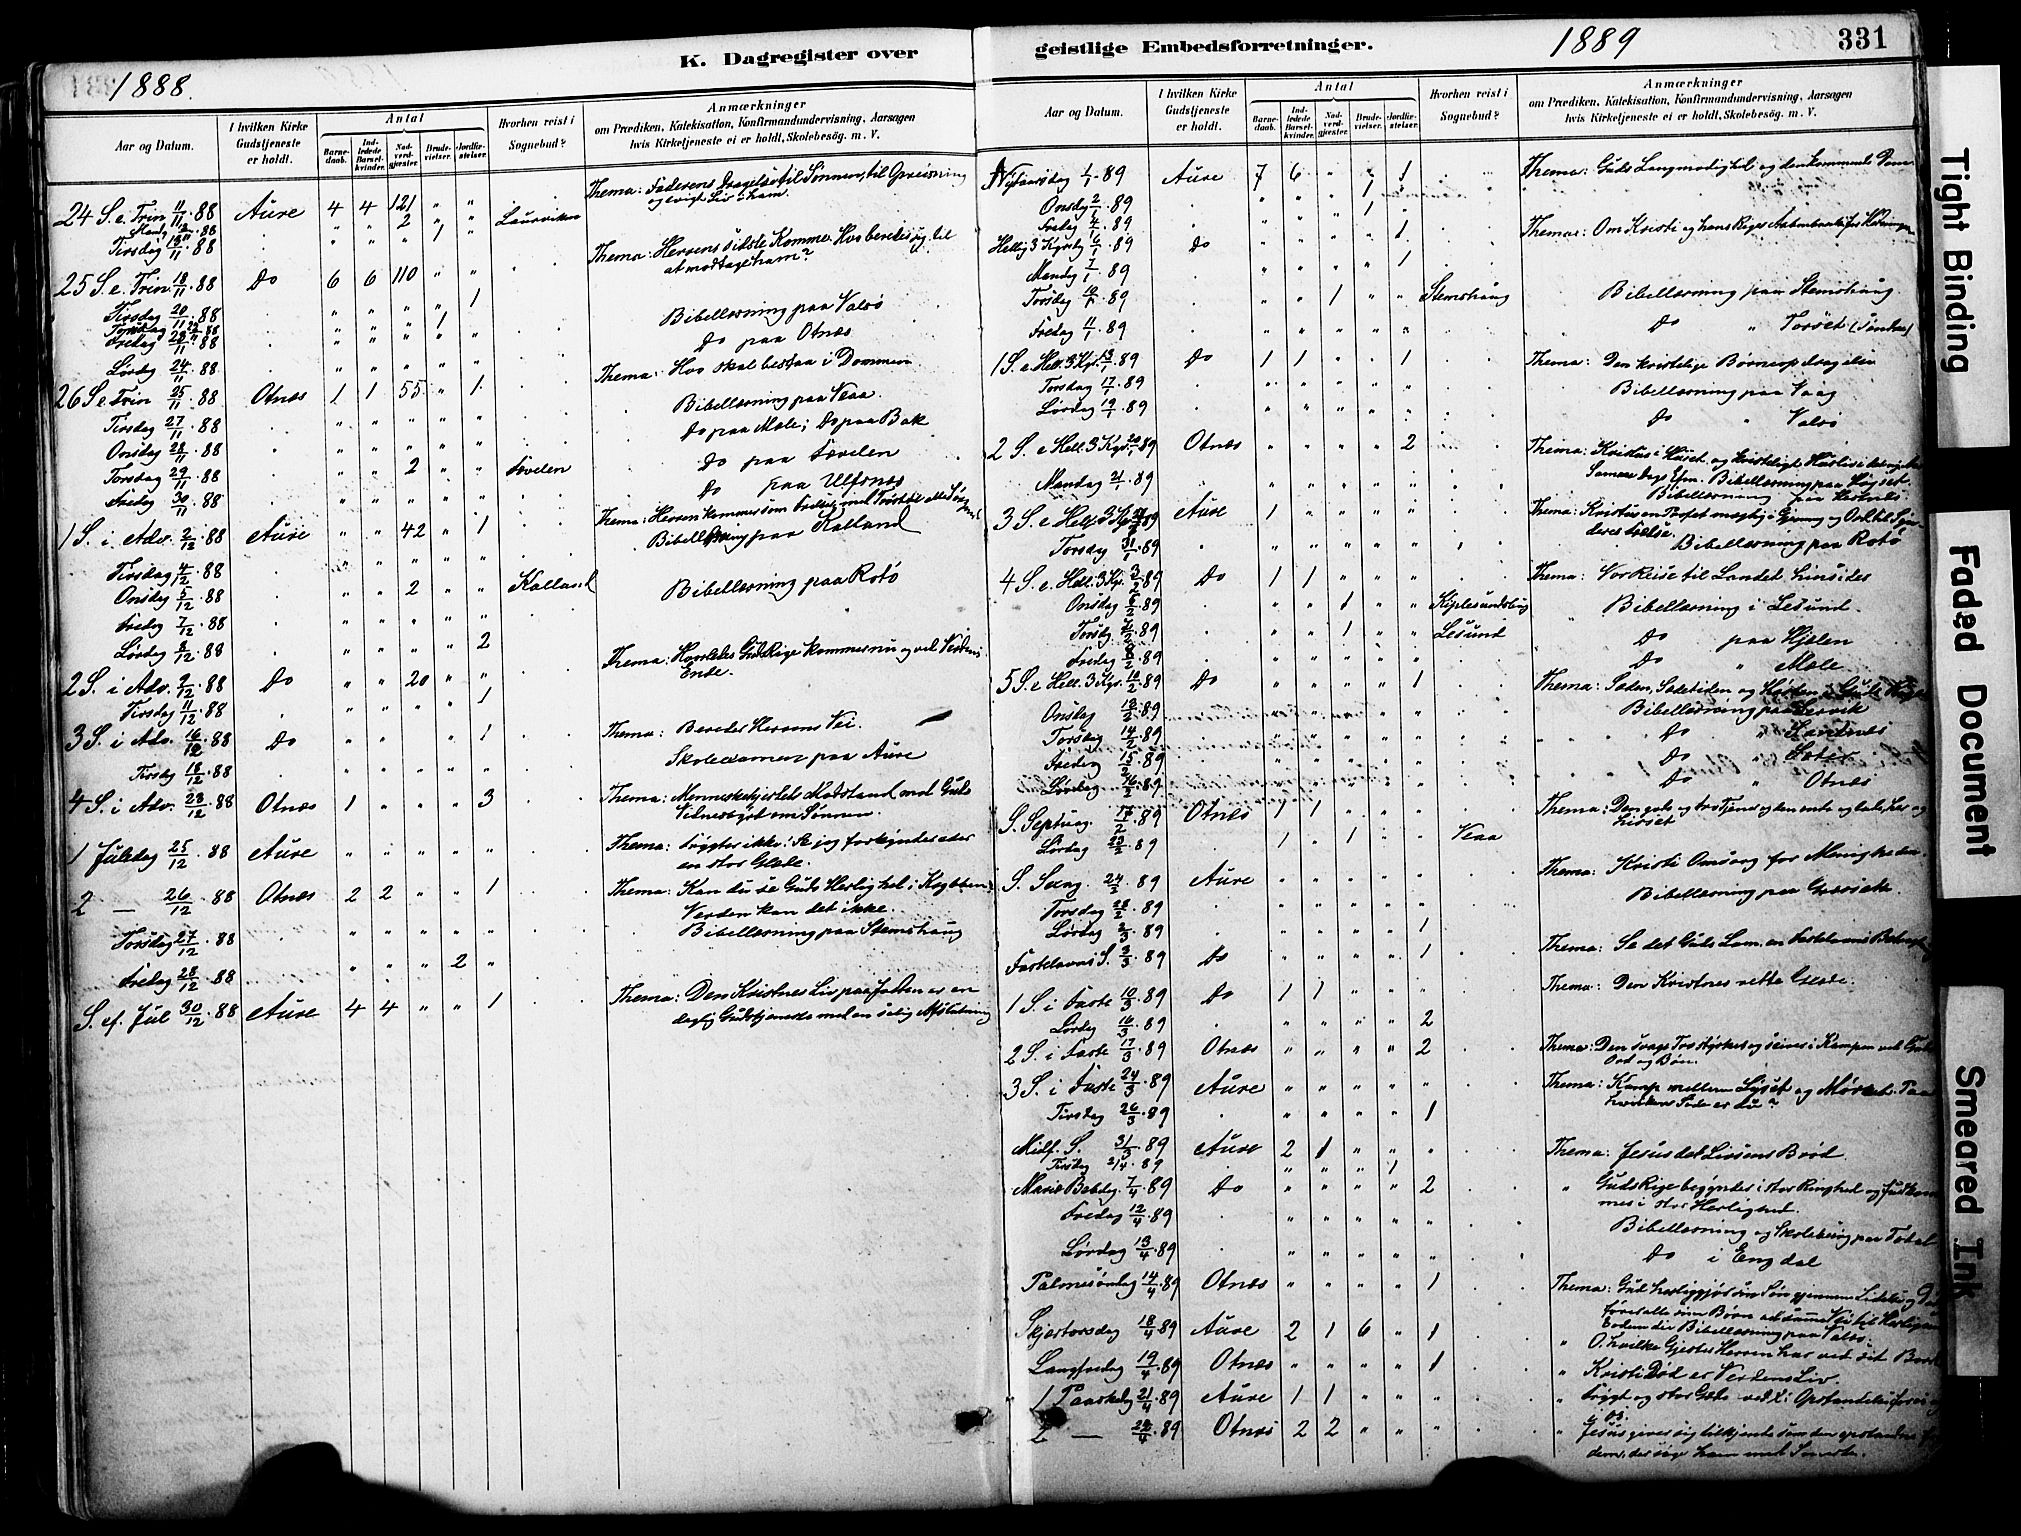 K. Dagregister over
1888.
Aar og Datum.
I hvilken Kirke Gudstjeneste er holdt.
Antal
Barnedaab.
Indledede Barselkvinder.
Nadverdgjester.
Brudevielser.
Jordfæstelser.
Hvorhen reist i Sognebud?
Anmærkninger
om Prædiken, Katekisation, Konfirmandundervisning, Aarsagen
hvis Kirketjeneste ei er holdt, Skolebesøg. m. V.
24 S. e. Trin 11/11 88 Aure 4 4 121 " " Thema: Faderens Dragelse til Sønnen, til Opreisning og evigt Liv i ham
" " 2 " " Laurviken
Tirsdag 13/11 88 . " " " 1 "
25 S. e. Trin. 18/11 88 Do 6 6 110 " " Thema: Herrens sidste Komme. Hvo bereder sig til at modtage ham?
Tirsdag 20/11 88 . " " " " 1
Torsdag 22/11 88 " " " 1 " Bibellæsning paa Valsø
Fredag 23/11 88 . " " " " " Do paa Otnæs
Lørdag 24/11 88 . " " " " "
26 S e Trin 25/11 88 Otnæs 1 1 55 " 1 Thema: Hvo skal bestaa i Dommen
Tirsdag 27/11 88 . " " " " " Bibellæsning paa Veaa.
Onsdag 28/11 88 . " " " " " Do paa Mæle; Do paa Bak
Torsdag 29/11 88 . " " 2 " " Fævelen Do paa Fævelen
Fredag 30/11 88 . " " " " " Do paa Ulfsnæs
1 S. i Adv. 2/12 88 Aure " " 42 " 1 Thema: Herren kommer som
Tirsdag 4/12 88 . " " " " " Bibellæsning paa Kalland
Onsdag 5/12 88 . " " 2 " " Kalland
Fredag 7/12 88 . " " " " " Bibellæsning paa Rotø
Lørdag 8/12 88 . " " " " 2
2 S. i Adv. 9/12 88 Do " " 20 " " Thema: Hvorledes Guds Rige kommer nu og ved Verdens Ende.
Tirsdag 11/12 88 . " " " " 1
3 S. i Adv. 16/12 88 Do " " " " 1 Thema: Bereder Herrens Vei
Tirsdag 18/12 88 . " " " " " Skoleexamen paa Aure
4 S. i Adv. 23/12 88 Otnæs 1 " " " 3 Thema: Menneskehjertets Modstand mod Guds Vidnesbyrd om Sønnen
1 Juledag 25/12 88 Aure " " " " " Thema: Frygter ikke! Se jeg forkynder eder en stor Glæde.
2 — 26/12 88 Otnæs 2 2 " " 1 Thema: Kan du se Guds Herlighed i Krybben, Verden kan det ikke.
Torsdag 27/12 88 . " " " " " Bibellæsning paa Stemshaug
Fredag 28/12 88 " " " 2 "
S. ef. Jul 30/12 88 Aure 4 4 " " 1 Thema: Den Kristnes Liv paa Jorden er en daglig Gudstjeneste med en salig Afslutning
geistlige Embedsforretninger.
1889
331
Aar og Datum.
I hvilken Kirke Gudstjeneste er holdt.
Antal
Barnedaab.
Indledede Barselkvinder.
Nadverdgjester.
Brudevielser.
Jordfæstelser.
Hvorhen reist i Sognebud?
Anmærkninger
om Prædiken, Katekisation, Konfirmandundervisning, Aarsagen
hvis Kirketjeneste ei er holdt, Skolebesøg. m. V.
Nytaarsdag 1/1 89 Aure 7 6 " " 1 Thema: Guds Langmodighed og den kommende Dom
Onsdag 2/1 89 " " " 1 "
Fredag 4/1 89 " " " 1 "
Hellig 3 Kgrsdg 6/1 89 Do " " " " 1 Thema: Om Kristi og hans Riges Aabenbarelse for Hedningene
Mandag 7/1 89 . " " " " 1
Torsdag 10/1 89 . " " 1 " " Stemshaug Bibellæsning paa Stemshaug
Fredag 11/1 89 . " " " " " Do " Torset
1 S. e Hell. 3 Kgr. 13/1 89 Do 1 1 " " 1 Thema: Den kristelige Børneopdragelse
Torsdag 17/1 89 . " " " " " Bibellæsning paa Vaag
Lørdag 19/1 89 . " " " " " Do " Valsø
2 S. e Hell. 3 Kgr. 20/1 89 Otnæs " " " " 2 Thema: Kristus i Huset
Mandag 21/1 89 . " " " " " Bibellæsning paa
3 S. e Hell. 3 Kgr. 89 Aure 1 " " " " Thema: Kristus en Profet mægtig i Gjerning og Ord
Torsdag 31/1 89 . " " " " " Bibellæsning paa Rotø
4 S. e Hell. 3 Kgr. 3/2 89 Do 1 1 " " " Thema: Vor Reise til Landet hinsides
Onsdag 6/2 89 . " " 1 " " Bibellæsning i Lesund.
Torsdg. 7/2 89 . " " 1 " " Lesund Do paa Hjelen
Fredag 8/2 89 " " " " " Do " Mæle
5 S. e Hell. 3 Kgr. 10/2 89 Do " " " " 1 Thema: Sæden, Sædetiden og Høsten i Guds Rige
Onsdag 13/2 89 . " " " " " Bibellæsning paa
Torsdag 14/2 89 . " " " " " Do
Fredag 15/2 89 . " " " " " Do " Sæter
Lørdag 16/2 89 . " " " " " Do " Otnæs
S. Septuag. 17/2 89 Otnæs 1 1 " " " Thema: Den gode og tro Tjener
Lørdag 23/2 89 . 1 " 1 " " Veaa
S. Sexag. 24/2 89 Aure " " " " " Thema: Kristi Omsorg for Menigheden.
Torsdag 28/2 89 . " " " " " Bibellæsning paa
Lørdag 2/3 89 . " " " " 1
Fastelavns S. 3/3 89 Do " " " " 1 Thema: Se det Guds Lam, en Fastelavns
1 S. i Faste 10/3 89 Do 1 1 " " " Thema: Den Kristnes rette Glæde.
Lørdg 16/3 89 . " " " " 2
2 S. i Faste 17/3 89 Otnæs " " " " 2 Thema: Den svage Tro styrkes og seirer i Kampen ved Guds Ord og Bøn.
3 S. i Faste 24/3 89 Aure " " " " " Thema: Kamp mellem Lyset og Mørket. Paa hvilken Side er du?
Tirsdag 26/3 89 . " " " " 1
Midf. S. 31/3 89 Aure 2 1 " " " Thema: Jesus det Livsens Brød.
Tirsdag 2/4 89 " " " 1
Mariæ Bebdg. 7/4 89 Do " " " " 2 " Guds Rige begynder i stor Ringhed og fuldkommes i stor Herlighed.
Fredag 12/4 89 . " " " " " Bibellæsning og Skolebesøg paa Todal
Lørdag 13/4 89 . " " " " " Do i Engdal
Palmesøndag 14/4 89 Otnæs " " " " 1 Thema: Gud herliggjør sin Søn gjennem Lidelse
Skjærtorsdag 18/4 89 Aure 2 1 6 " 1 " O, hvilke Gjester Herren har ved sit Bord
Langfredag 19/4 89 Otnæs " " " " 1 " Kristi Død er Verdens Liv.
1 Paaskedg 21/4 89 Aure 1 1 " " " " Frygt og stor Glæde ved
2 — 22/4 89 Otnæs 2 2 " " " " Jesus giver sig tilkjende som den opstandne for dem, der søge ham med
Tight Binding
Faded Document
Smeared Ink